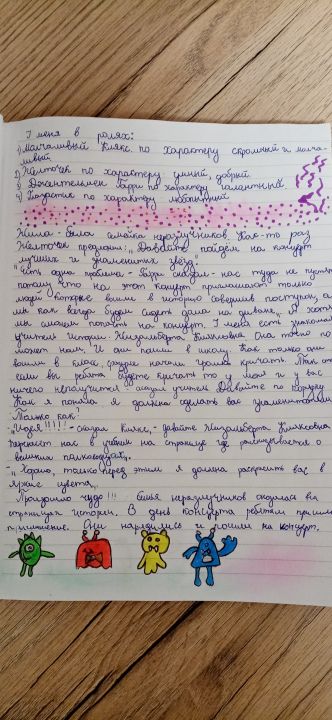 Имена в ролях:
1) Молчаливый Клякс по характеру скромный и молча-
ливый
2) Желточек по характеру умный, добрый
3) Джентельмен Гафри по характеру галантный
4) по характеру любопытный
Жила-была семейка неразлучников. Как-то раз
Желточек предложил: „Давайте пойдём на концерт
лучших и знаменитых звёзд"
"Есть одна проблема - сказал - нас туда не пустят
потому что на этот концерт приглашают только
людей которые вошли в историю совершив поступки, а
мы как всегда будем сидеть дома на диване, Я хотя
мы сможем попасть на концерт. У меня есть знакомая
учитель истории. Кляксовна. Она точно по-
может нам. И они пошли в школу. Как только они
вошли в класс, сразу начали громко кричать. Так
если вы ребята будете кричать то у меня и у вас
ничего не получится - сказал учитель Давайте по порядку
Как я поняла я должна сделать вас знаменитыми
Только как?
„Идея!!!!! - сказал Клякс, - давайте Кляксовна
нарисует нас в учебник на странице где рассказывается о
великих полководцах„
-„ Хорошо, только перед этим я должна раскрасить вас в
яркие цвета„
"Произошло чудо!!! Семья неразлучников оказалась на
страницах истории. В день концерта ребятам пришло
приглашение. Они нарядились и пошли на концерт.